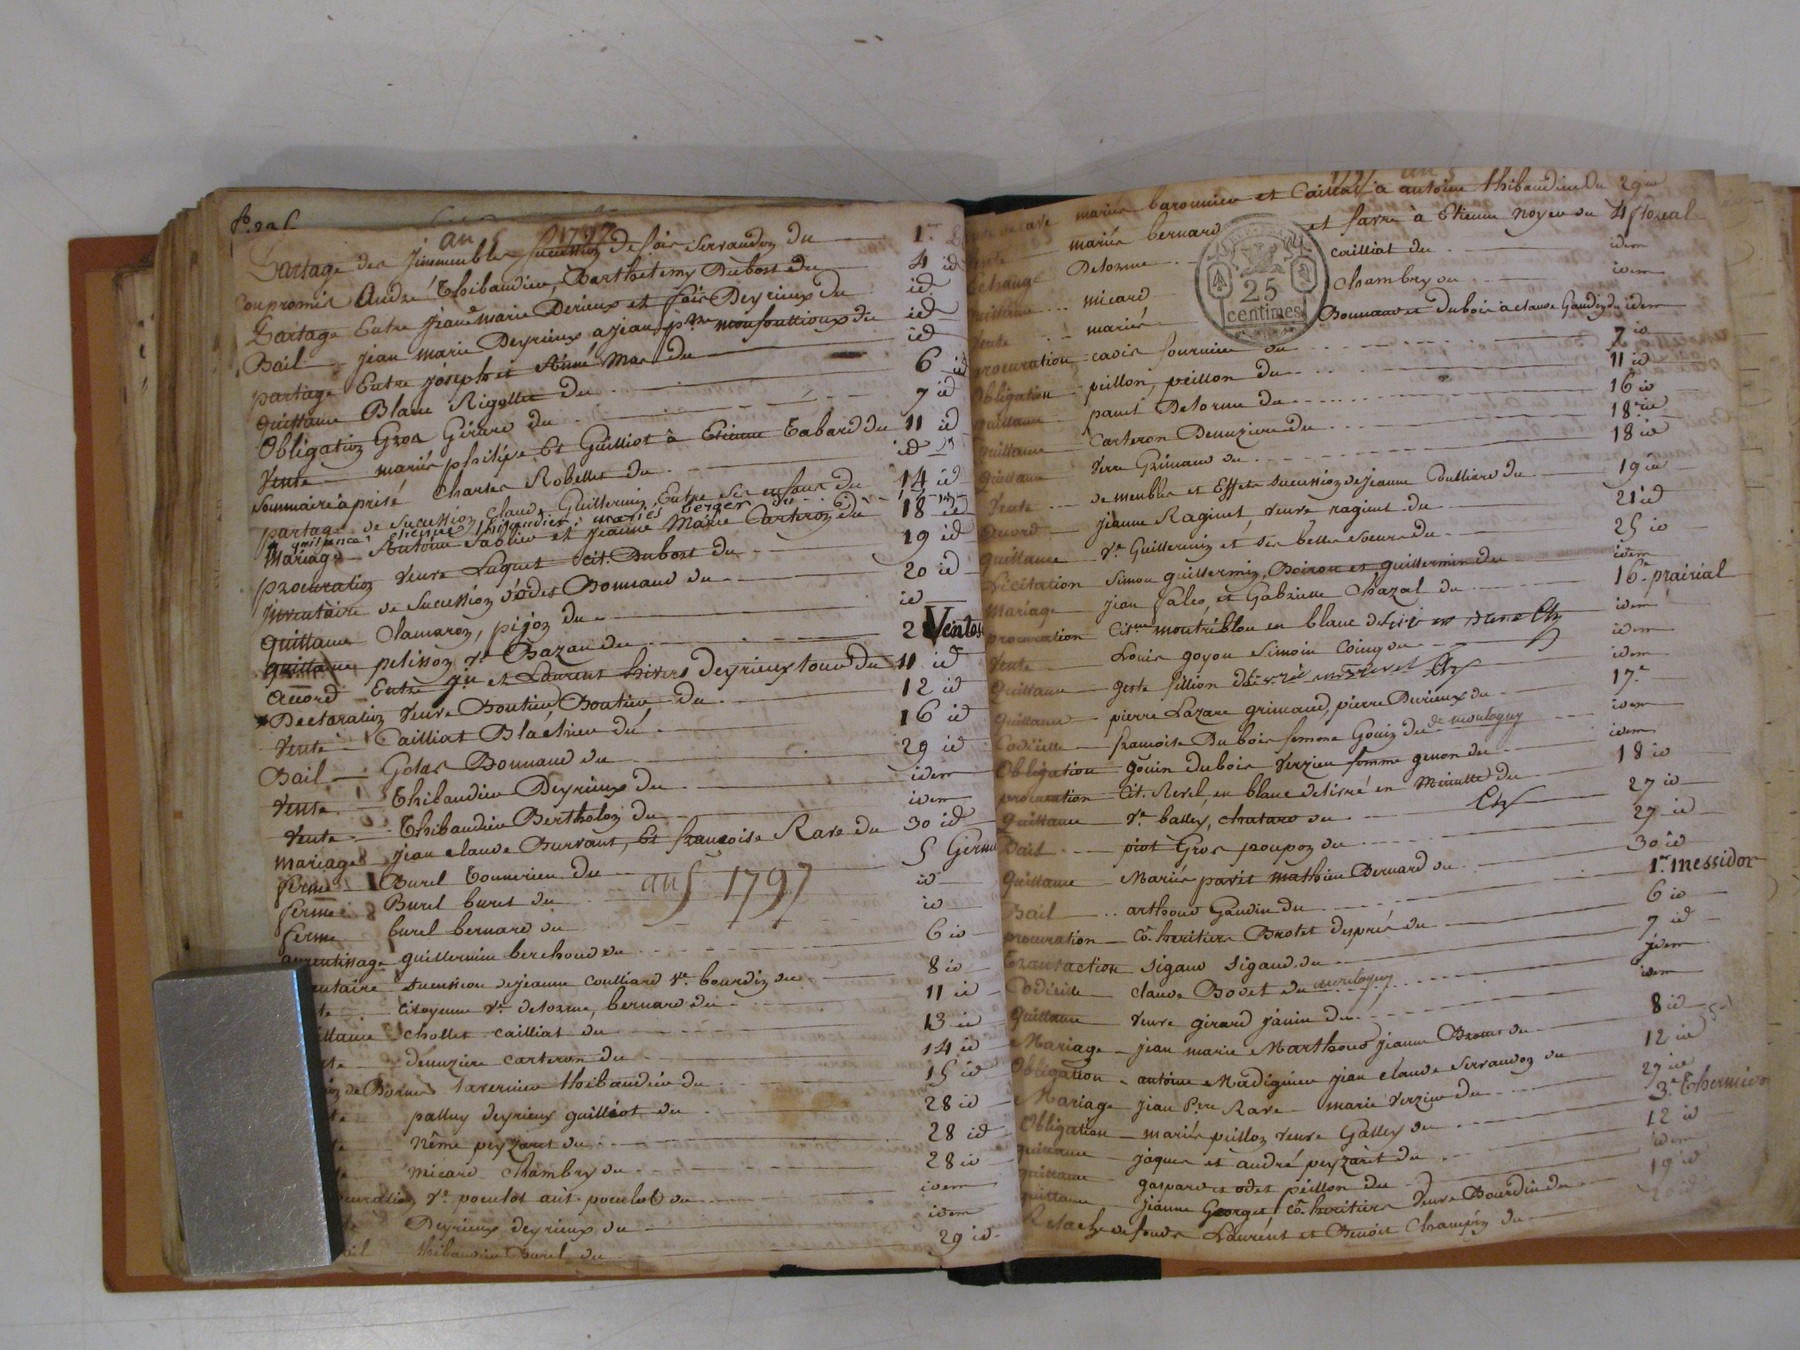 an 5 1797
Partage des jmmeubles succession de fois Servandon du 1.er
Conpromis André Thibaudier, Barthelemy Dubost du 4 id
Partage Entre jeane marie Derieux et fois Deyrieux du id
Bail jean marie Deyrieux a jean p.re monfouilloux du id
partage Entre joseph et Aimé Mas du id
quittance Blanc Rigollet du 6 id
Obligation Gros Gérard du 7 id
Vente mariés philipe Et Guilliot à Etienne Tabard du 11 id
Sommaire à prisé Charles Robellet du id
partage de sucession claude Guillermin Entre ses enfans du 14 id
quittance etienne thibaudier, mariés berger du 18
Mariage Antoine Sablier et jeanne Marie Carteron du 18 id
procuration veuve Luquet cit. Dubost du 19 id
jnventaire de Sucession d'odet Bonnand du 20 id
quittance Clamaron, pijon du id
quittance pelisson v.e Bazan du 2 Ventose
accord Entre j.n et Laurent hivers Deyrieux tous du 11 id
Declaration veuve Boutier Boutier du 12 id
Vente Cailliat Bláchier du 16 id
Bail Golas Bonnand du 29 id
Vente Thibaudier Deyrieux du idem
Vente Thibaudier Bertholon du idem
Mariage jean claude Durvant, Et francoise Rave du 30 id
ferme Burel Tonnerieu du 5 Germ
an 5 1797
ferme Burel buret du id
ferme burel bernard du id
aprentissage guillermin berchoud du 6 id
sucession de jeanne coulliard v.e bourdin du 8 id
citoyenne v.e delorme, bernard du 11 id
chollet cailliat du 13 id
denuziere carteron du 14 id
de Bornes tavernier thibaudier du 15 id
palluy deyrieux guilliot du 28 id
Nême peyzaret du 28 id
micard chambry du 28 id
v.e poculot ant. poculot du idem
Deyrieux deyrieux du idem
thibaudier Burel du 29 id
1797 an 5
mariés baronnier et Cailliat à antoine thibaudier du 29 id
mariés bernard et favre à Etienne noyer du 4 floreal
Echange Delorme cailliat du idem
micard Chambry du idem
Vente mariés Bonnard et dubois a claude Gaudin du idem
25
centimes
procuration cadis fournier du 7 id
Obligation peillon, peillon du 11 id
quittance panet Delorme du 16 id
quittance Carteron Denuziere du 18 id
quittance Verre Grimaud du 18 id
Vente de meubles et Effets sucession de jeanne Coulliard du 19 id
accord jeanne Raginet, veuve raginet du 21 id
quittance V.e Guillermin et ses belles soeurs du 25 id
Licitation Simon guillermin, Boiron et guillermin du idem
Mariage jean faleo, et Gabrielle Chazal du 16.e prairial
procuration Cit.ne montriblou en blanc idem
Vente Louis goyon Simoin Coing du idem
quittance geste fillion idem
quittance pierre Lazare grimaud, pierre Derieux du 17.e
Codicille francoise Dubois femme Gouin du de montagny idem
Obligation gouin dubois Verzieu femme genon du idem
procuration Cit. Revel, en blanc delivré en Minutte du 18 id
quittance V.e balley, chatard du 27 id
Bail piot Gros poupon du 27 id
quittance Mariés pavit mathieu Bernard du 30 id
Bail arthoud Gaudin du 1.er messidor
procuration Cô. heritiers Brotet després du 6 id
Transaction Sigaud Sigaud. du 7 id
Codicille claude Bodet du jdem
quittance veuve girard janin du idem
Mariage jean marie Marthoud jeanne Brotet du 8 id
Obligation antoine Madiginier jean claude Servandon du 12 id
Mariage jean P.re Rave marie Verzieu du 27 id
Obligation mariés peillon veuve Galley du 3.e Thermidor
quittance jaques et andré peyzaret du 12 id
quittance gaspard et odet peillon du idem
quittance jeanne Georget cô. heritiers veuve Bourdin du 19 id
Relache de fonds Laurent et Benoit Champin du 20 id